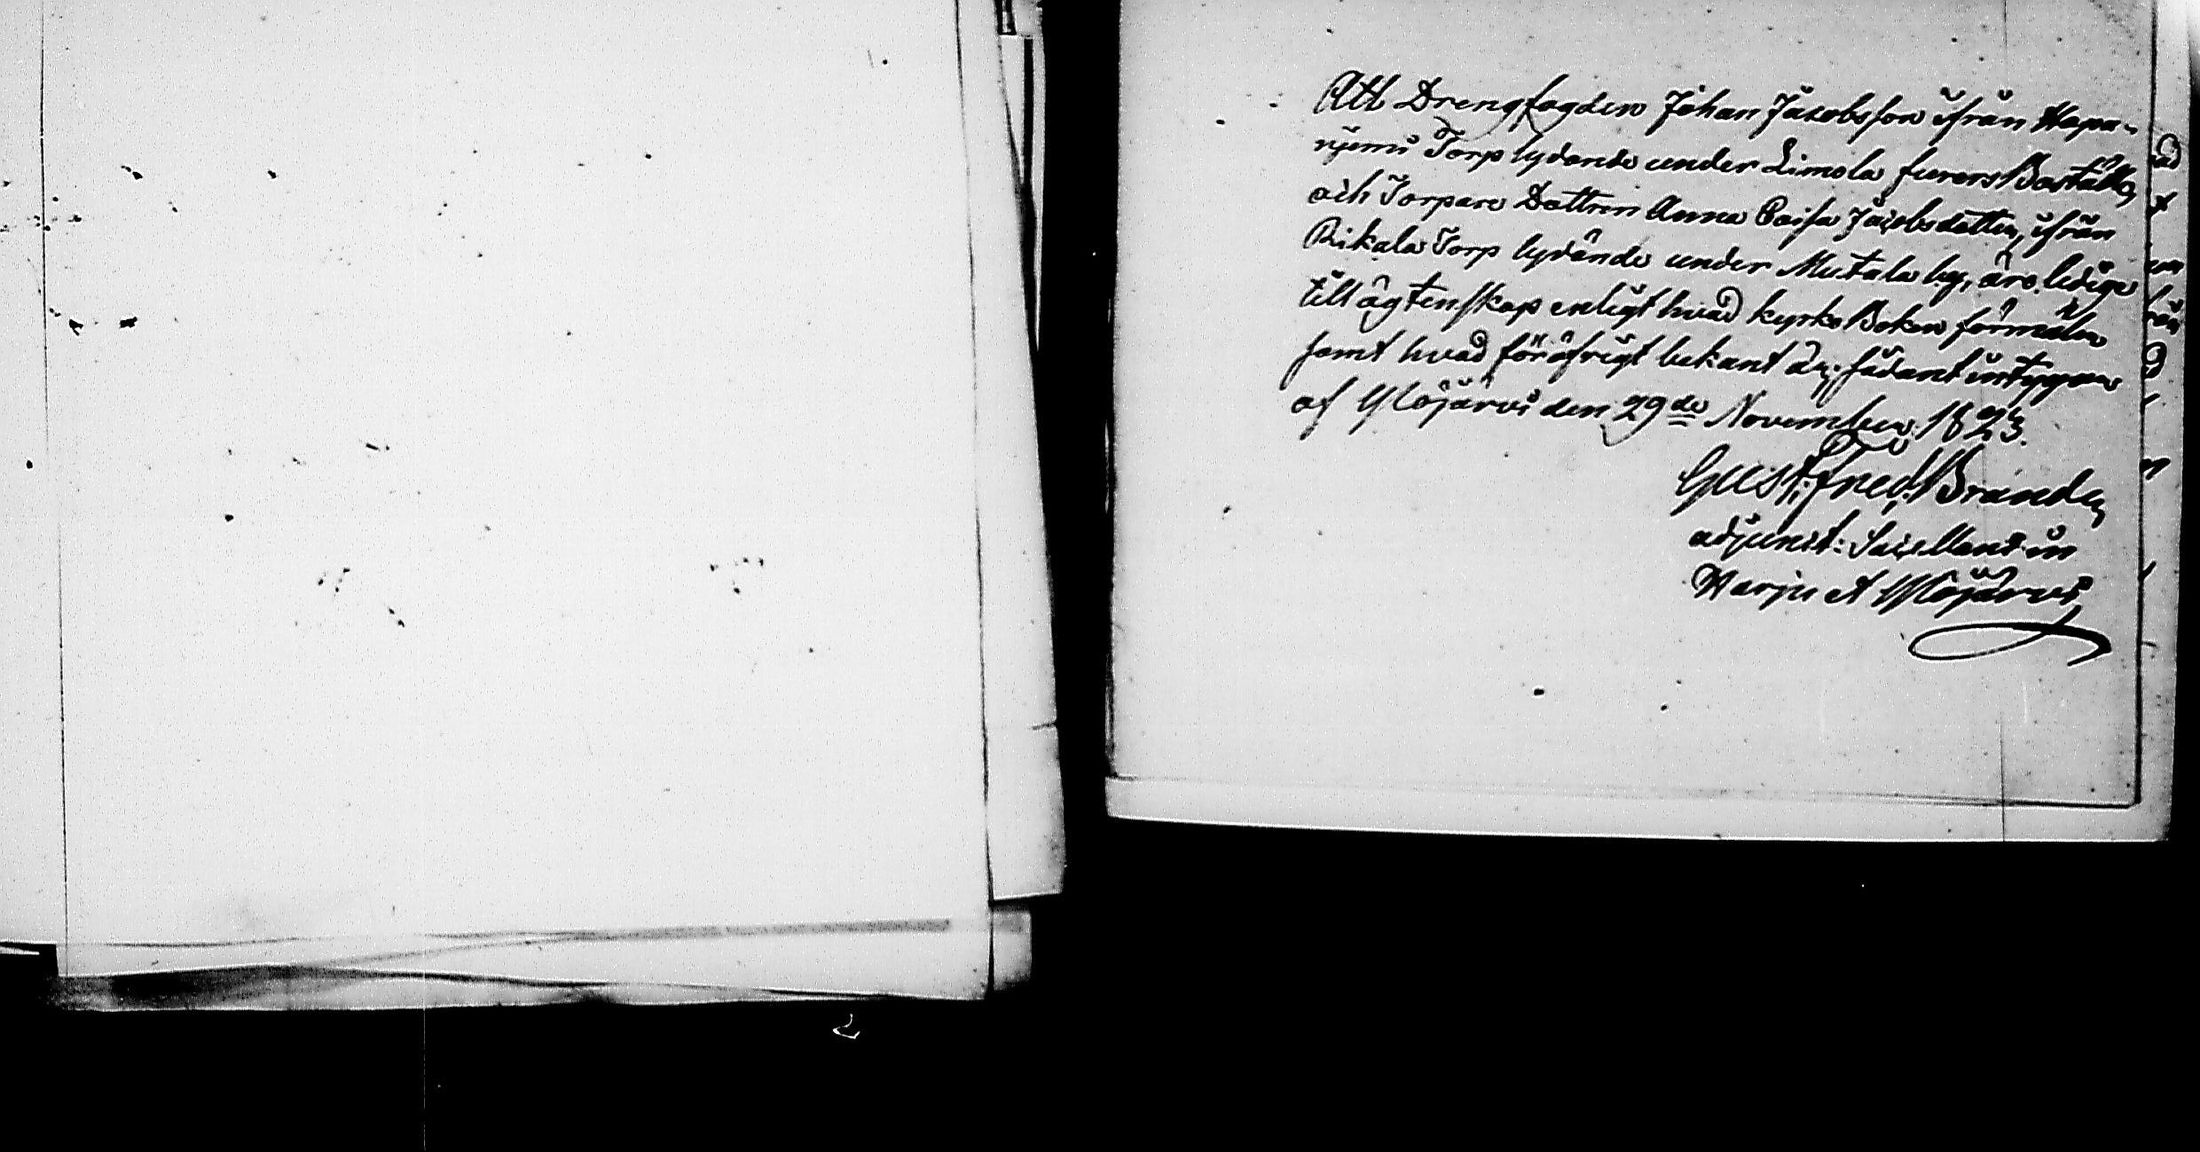 Att Drengfogden Johan Jacobsson ifrån Hapa-
njemi Torp lydande under Limola furersBoställe,
och Torpare Dottren Anna Caisa Jacobsdotter, ifrån
Rikala Torp lydande under Mutala by, äro ledige
till ägtenskap enligt hvad kyrko Boken förmäler
samt hvad föröfrigt bekant är; sådant intygar
af Ylöjärvi den 29de November 1823.
Gust: Fred: Brander
adjunct: Sacellant in
Harju et Ylöjärvi